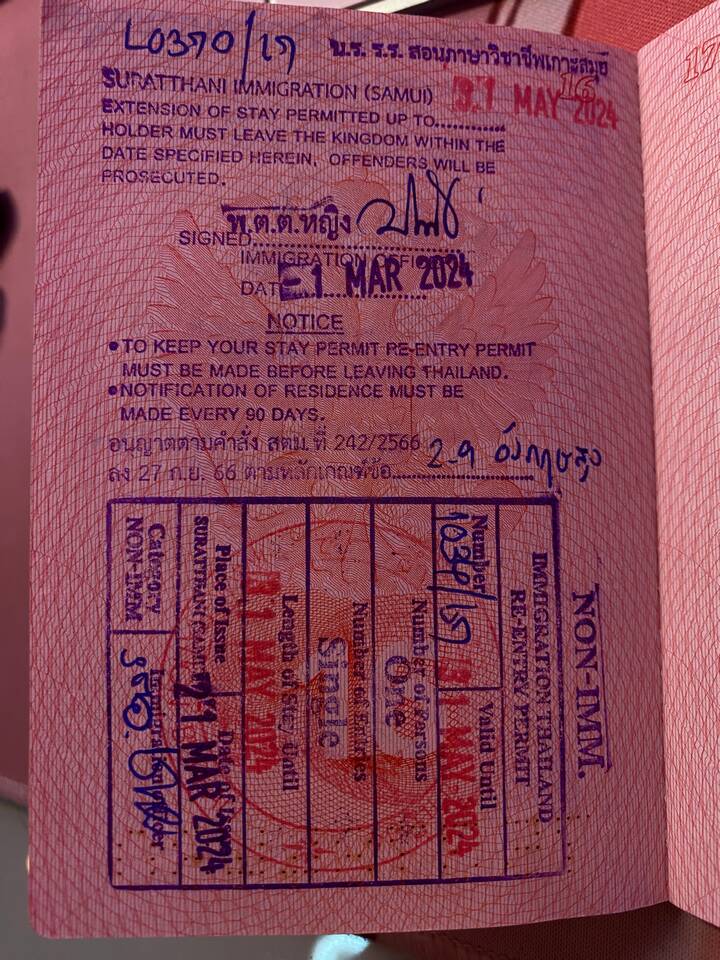 น.ร. ร.ร. สอนภาษาวิชาชีพเกาะสมุย
SURATTHANI IMMIGRATION (SAMUI)
EXTENSION OF STAY PERMITTED UP TO............ 31 MAY 2024
HOLDER MUST LEAVE THE KINGDOM WITHIN THE
DATE SPECIFIED HEREIN, OFFENDERS WILL BE
PROSECUTED.
พ.ต.ต.หญิง
SIGNED
IMMIGRATION OFFICER
DATE 1 MAR 2024
NOTICE
•TO KEEP YOUR STAY PERMIT RE-ENTRY PERMIT
MUST BE MADE BEFORE LEAVING THAILAND.
•NOTIFICATION OF RESIDENCE MUST BE
MADE EVERY 90 DAYS.
อนุญาตตามคำสั่ง สตม.ที่ 242/2566
ลง 27 ก.ย. 66 ตามหลักเกณฑ์ข้อ
NON-IMM.
IMMIGRATION THAILAND
RE-ENTRY PERMIT
Number
Valid Until
31 MAY 2024
Number of Persons
One
Number of Entries
Single
Length of Stay Until
31 MAY 2024
Place of Issue
SURATTHANI (SAMUI)
Date of Issue
21 MAR 2024
Category
NON-IMM
17
16